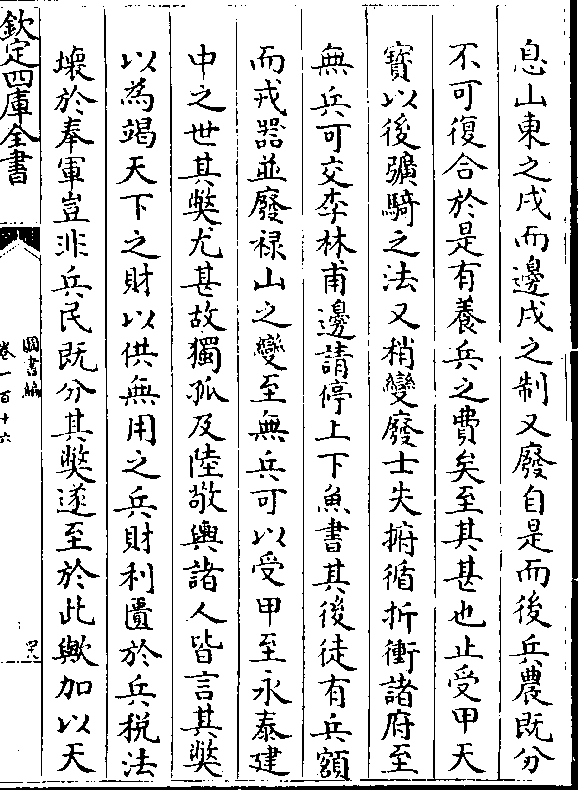 息山東之戍而邊戍之制又廢自是而後兵農既分
不可復合於是有養兵之費矣至其甚也止受甲天
寳以後彍騎之法又稍變廢士失拊循折衝諸府至
無兵可交李林甫邊請停上下魚書其後徒有兵額
而戎器並廢禄山之變至無兵可以受甲至永泰建
中之世其獘尤甚故獨孤及陸敬輿諸人皆言其獘
以為竭天下之財以供無用之兵財利匱於兵税法
壊於奉軍豈非兵民既分其獘遂至於此歟加以天
欽定四庫全書
圖書編
卷一百十六